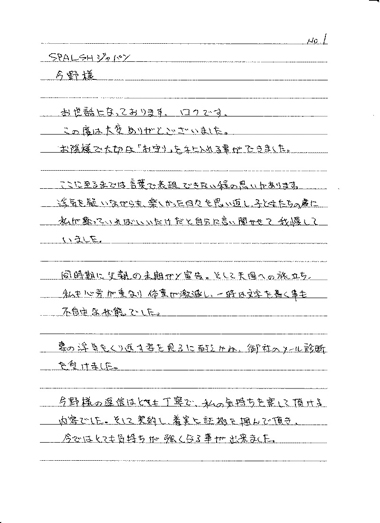 No.1
SPALSHジャパン
今野様
お世話になっております。ロクです。
この度は大変ありがとうございました。
お陰様で大切な「お守り」を手に入れる事ができました。
ここに至るまでは言葉で表現できない程の思いがあります。
浮気を疑いながらも、楽しかった日々を思い返し、子どもたちの為に
私が黙っていればいいだけだと自分に言い聞かせて我慢して
いました。
同時期に父親の末期がん宣告。そして天国への旅立ち。
私も心労が重なり体重が激減し、一時は文字を書く事も
不自由な状態でした。
妻の浮気をくり返す姿を見るに耐えかね、御社のメール診断
を受けました。
今野様の返信はとても丁寧で、私の気持ちを察して頂ける
内容でした。そして契約し、着実に証拠を掴んで頂き、
今ではとても気持ちが強くなる事が出来ました。